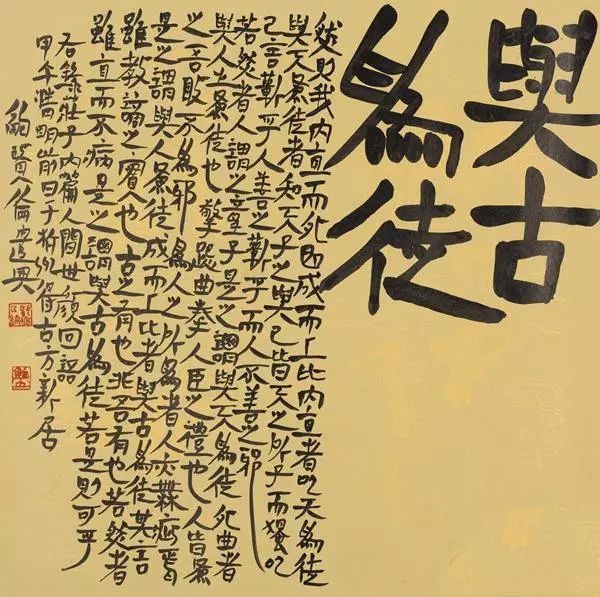 與古
為徒
然則我內直而外曲成而上比內直者以天為徒
與天為徒者知天子之與己皆天之所子而獨以
己言蘄乎人善之蘄乎而人不善之邪
若然者人謂之童子是之謂與天為徒外曲者
與人之為徒也擎跽曲拳人臣之禮也人皆為
之吾敢不為邪為人之所為者人亦無疵焉
是之謂與人為徒成而上比者與古為徒其言
雖教謫之實也古之有也非吾有也若然者
雖直而不病是之謂與古為徒若是則可乎
右錄莊子內篇人間世顏回語
甲午清明前日于杭州得古方新居
鮑賢倫遣興